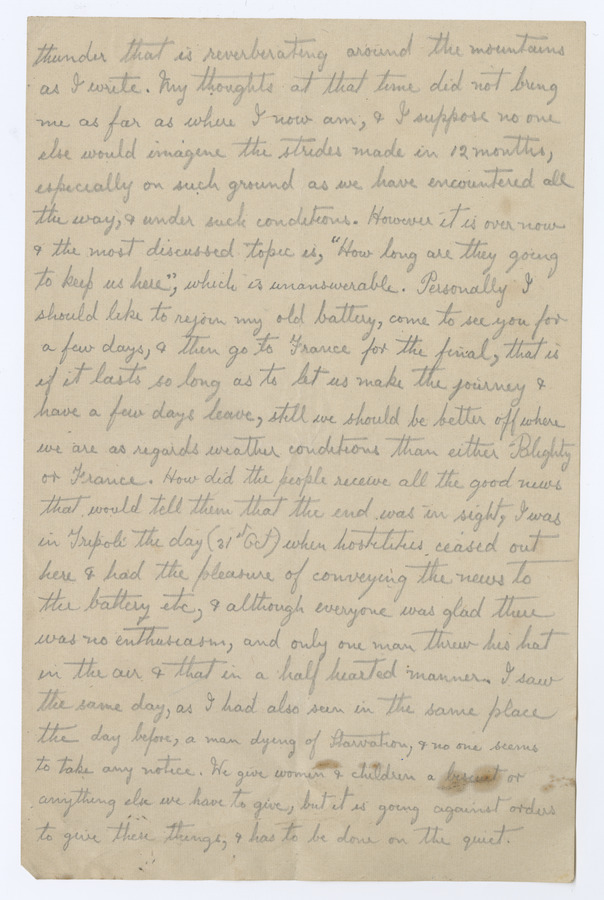 thunder that is reverberating around the mountains
as I write. My thoughts at that time did not bring
me as far as where I now am, & I suppose no one
else would imagine the strides made in 12 months,
especially on such ground as we have encountered all
the way, & under such conditions. However it is over now
& the most discussed topic is, "How long are they going
to keep us here", which is unanswerable. Personally I
should like to rejoin my old battery, come to see you for
a few days, & then go to France for the final, that is
if it lasts so long as to let us make the journey &
have a few days leave, still we should be better off where
we are as regards weather conditions than either Blighty
or France. How did the people receive all the good news
that would tell them that the end was in sight, I was
in Tripoli the day (31st Oct) when hostilities ceased out
here & had the pleasure of conveying the news to
the battery etc, & although everyone was glad there
was no enthusiasm, and only one man threw his hat
in the air & that in a half hearted manner. I saw
the same day, as I had also seen in the same place
the day before, a man dying of starvation, & no one seems
to take any notice. We give women & children a biscuit or
anything else we have to give, but it is going against orders
to give these things, & has to be done on the quiet.